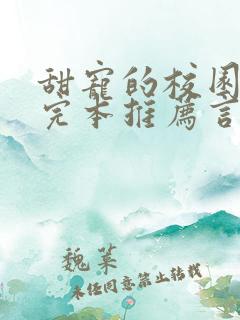 甜宠的校园
完本推荐言
魏菜
未经同意禁止转载